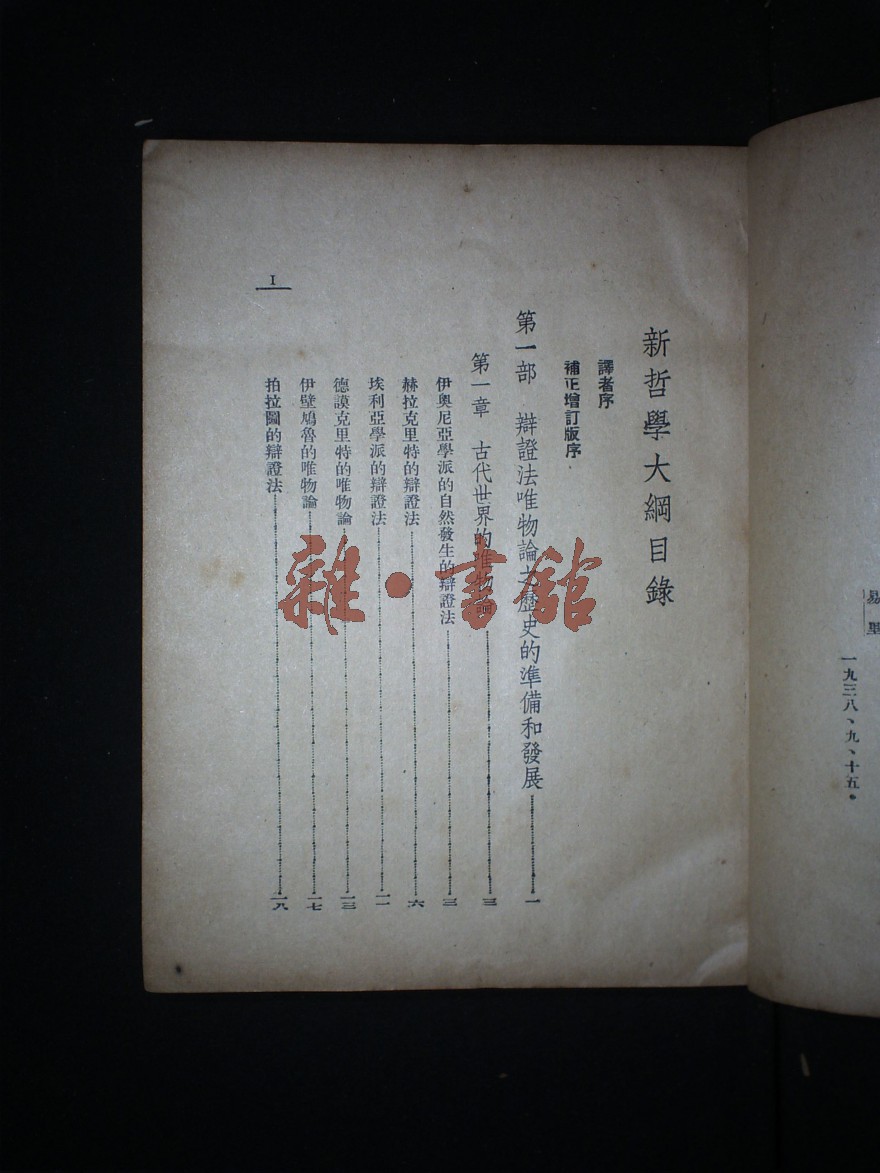 易里
一九三八、九、十五。
新哲學大綱目錄
譯者序
補正增訂版序
第一部 辯證法唯物論之歷史的準備和發展 一
第一章 古代世界的唯物論 三
伊奧尼亞學派的自然發生的辯證法 三
赫拉克里特的辯證法 六
埃利亞學派的辯證法 一一
德謨克里特的唯物論 一三
伊壁鳩魯的唯物論 一七
拍拉圖的辯證法 一九
I
雜·書館